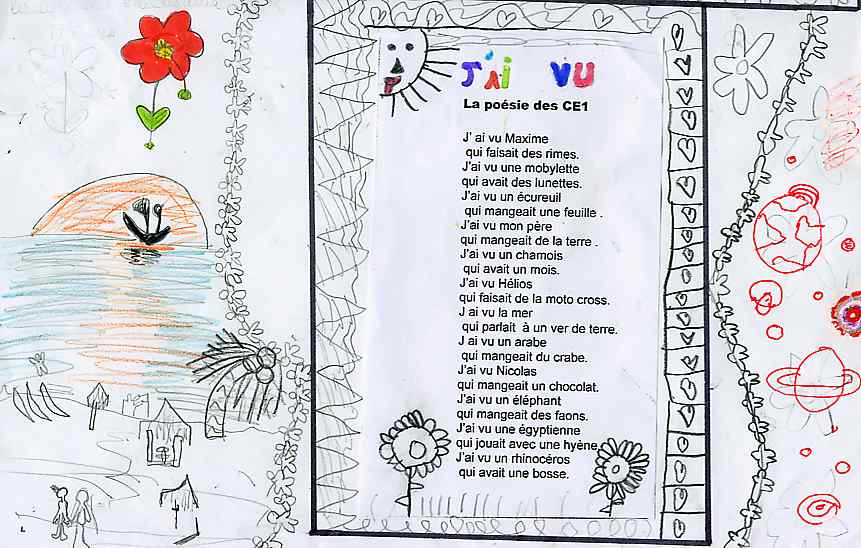 J'ai vu
La poésie des CE1
J' ai vu Maxime
qui faisait des rimes.
J'ai vu une mobylette
qui avait des lunettes.
J'ai vu un écureuil
qui mangeait une feuille .
J'ai vu mon père
qui mangeait de la terre .
J'ai vu un chamois
qui avait un mois.
J'ai vu Hélios
qui faisait de la moto cross.
J ai vu la mer
qui parlait à un ver de terre.
J ai vu un arabe
qui mangeait du crabe.
J'ai vu Nicolas
qui mangeait un chocolat.
J'ai vu un éléphant
qui mangeait des faons.
J'ai vu une égyptienne
qui jouait avec une hyène.
J'ai vu un rhinocéros
qui avait une bosse.